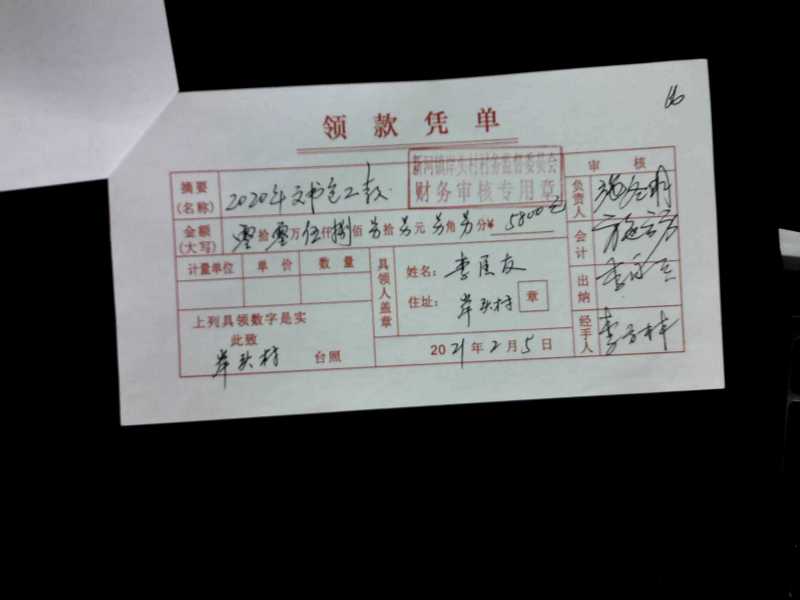 领款凭单
新河镇岸头村村务监督委员会
财务审核专用章
摘要(名称) 2020年文书包工款
金额(大写) 零拾零万伍仟捌佰另拾另元另角另分¥ 5800元
计量单位 单价 数量
上列具领数字是实
此致
岸头村 台照
具领人盖章
姓名: 李
友
住址: 岸头村 章
2021年2月5日
审核
负责人
会计
出纳
经手人